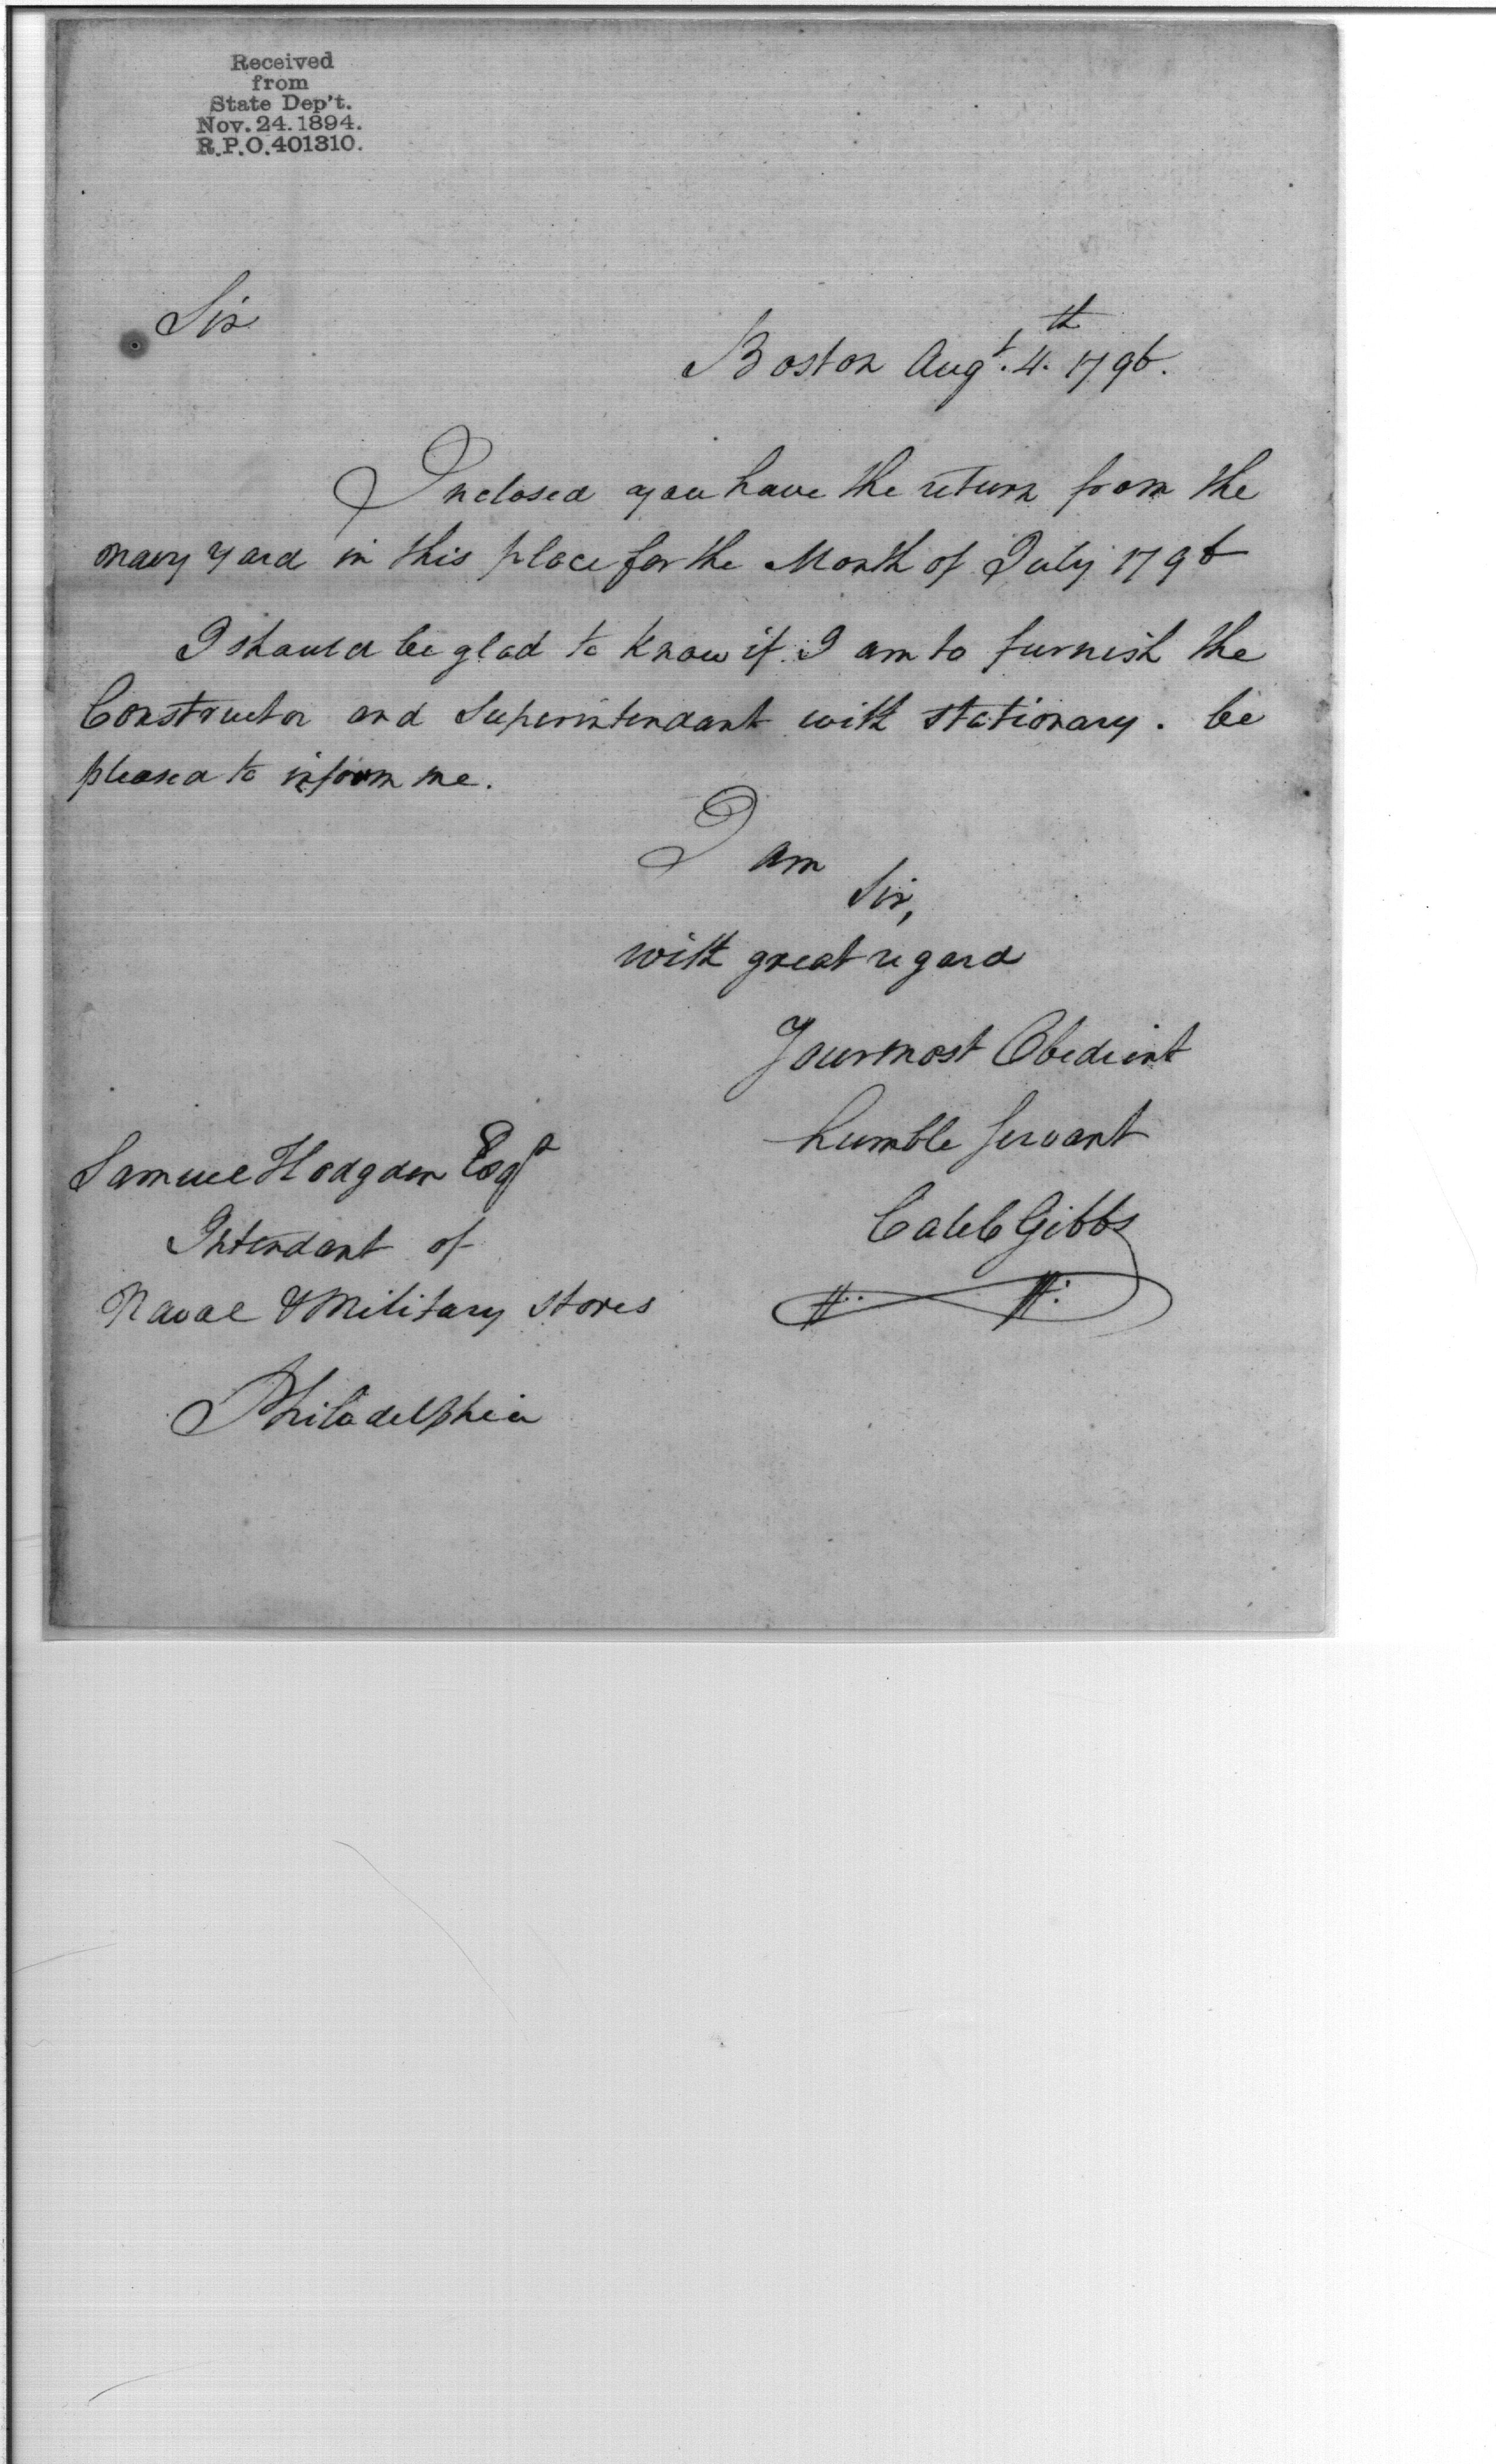 Received
from
State Dep't.
Nov. 24. 1894.
R.P.O. 401310.
Sir
Boston Augt. 4th. 1796.
Inclosed you have the return from the
navy yard in this place for the Month of July 1796
I should be glad to know if I am to furnish the
Constructor and Superintendant with stationary. be
pleased to inform me.
I am
Sir,
with great regard
Your most Obedient
humble Servant
Caleb Gibbs
Samuel Hodgdon Esqr
Intendant of
Naval & Military stores
Philadelphia